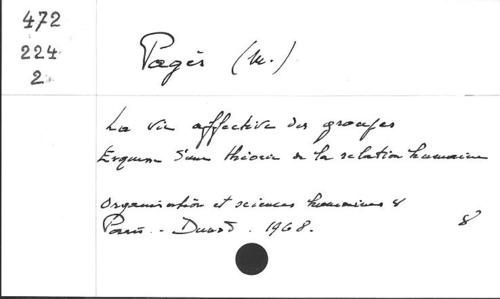 472
224
2
Pagès (M.)
La vie affective des groupes
Esquisse d'une théorie de la relation humaine
Organisation et sciences humaines 8
Paris - Dunod. 1968. 8